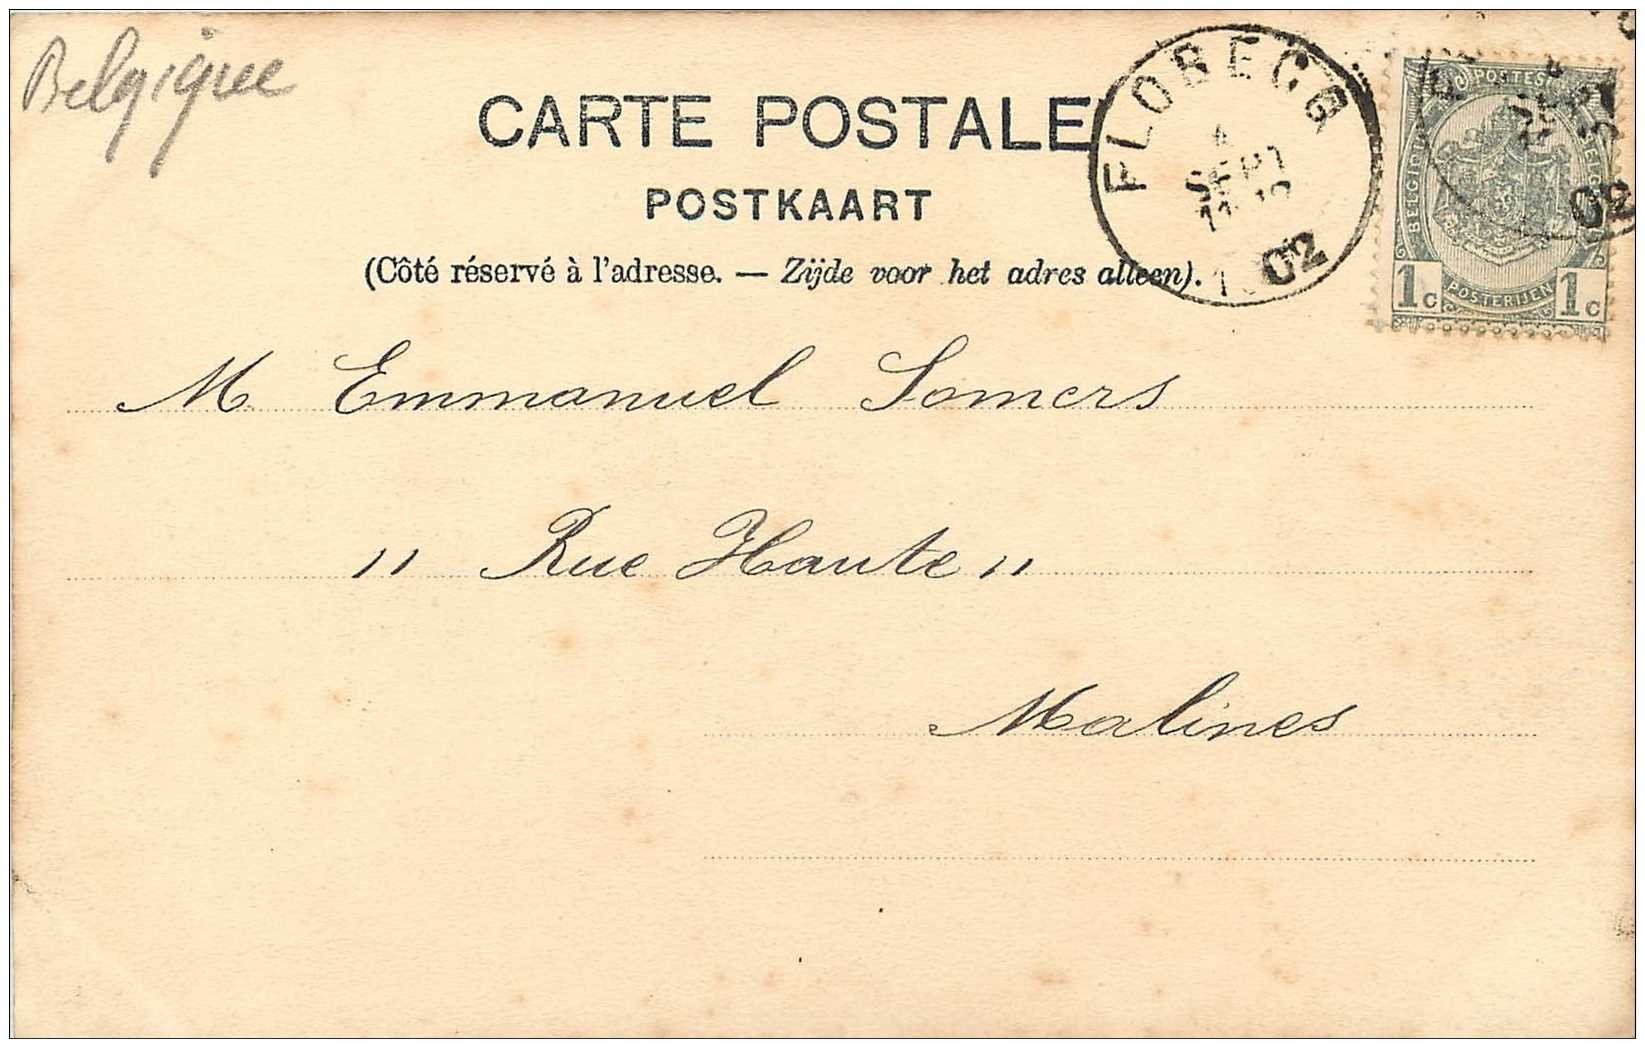 Belgique
CARTE POSTALE
POSTKAART
(Côté réservé à l'adresse. — Zijde voor het adres alleen).
FLOBECQ
SEPT
02
POSTES
BELGIQUE
POSTERIJEN
1c 1c
02
M Emmanuel Somers
" Rue Haute "
Malines